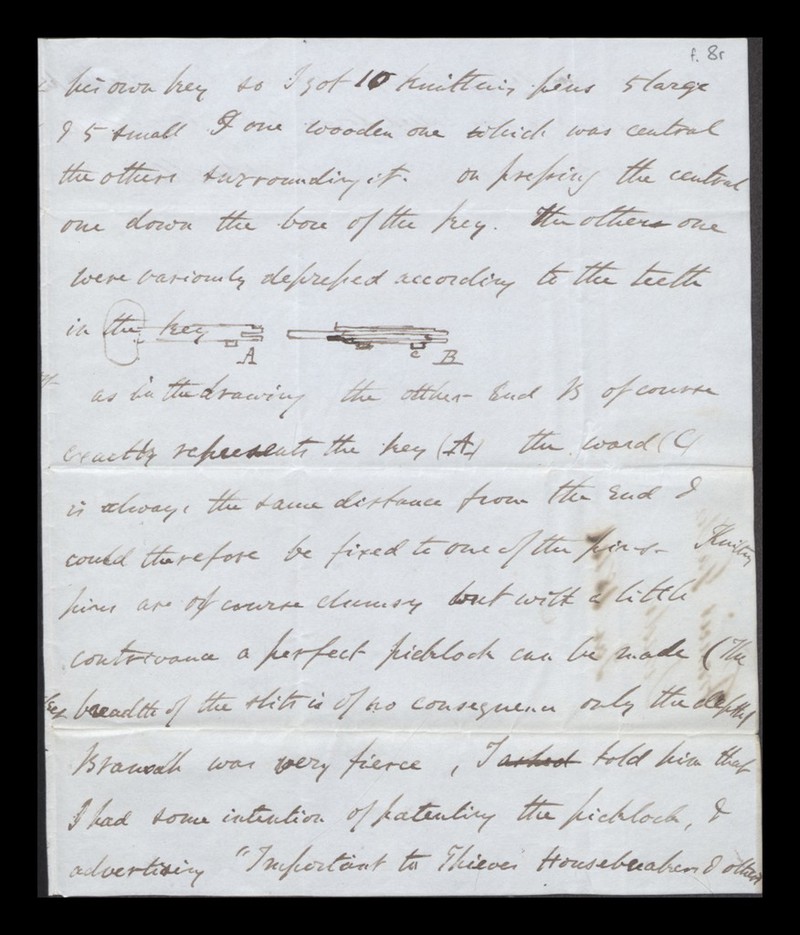 f. 8r
his own key so I got 10 Knitting pins 5 large
& 5 small & one wooden one which was central
the others surrounding it. on pressing the central
one down the bore of the key. The others one
were variously depressed according to the teeth
in the key
A C B
as in the drawing the other End B of course
exactly represents the key (A) the ward (C)
is always the same distance from the End &
could therefore be fixed to one of the pins - Knitting
pins are of course clumsy but with a little
contrivance a perfect picklock can be made (The
breadth of the slits is of no consequence only the depths
Bramah was very fierce, I asked told him that
I had some intention of patenting the picklock, &
advertising "Important to Thieves Housebreakers & others